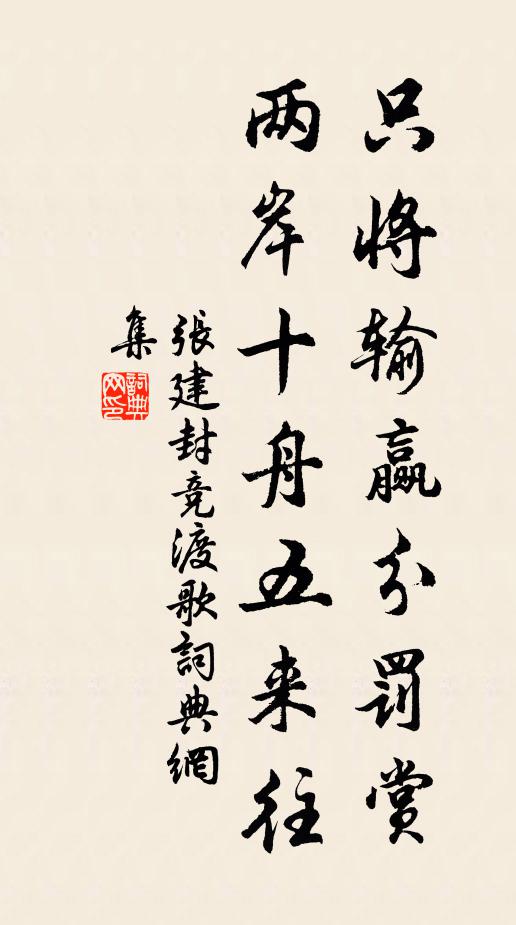 只将输赢分罚赏
两岸十舟五来往
張建封竞渡歌詞典網
集
詞典
网印